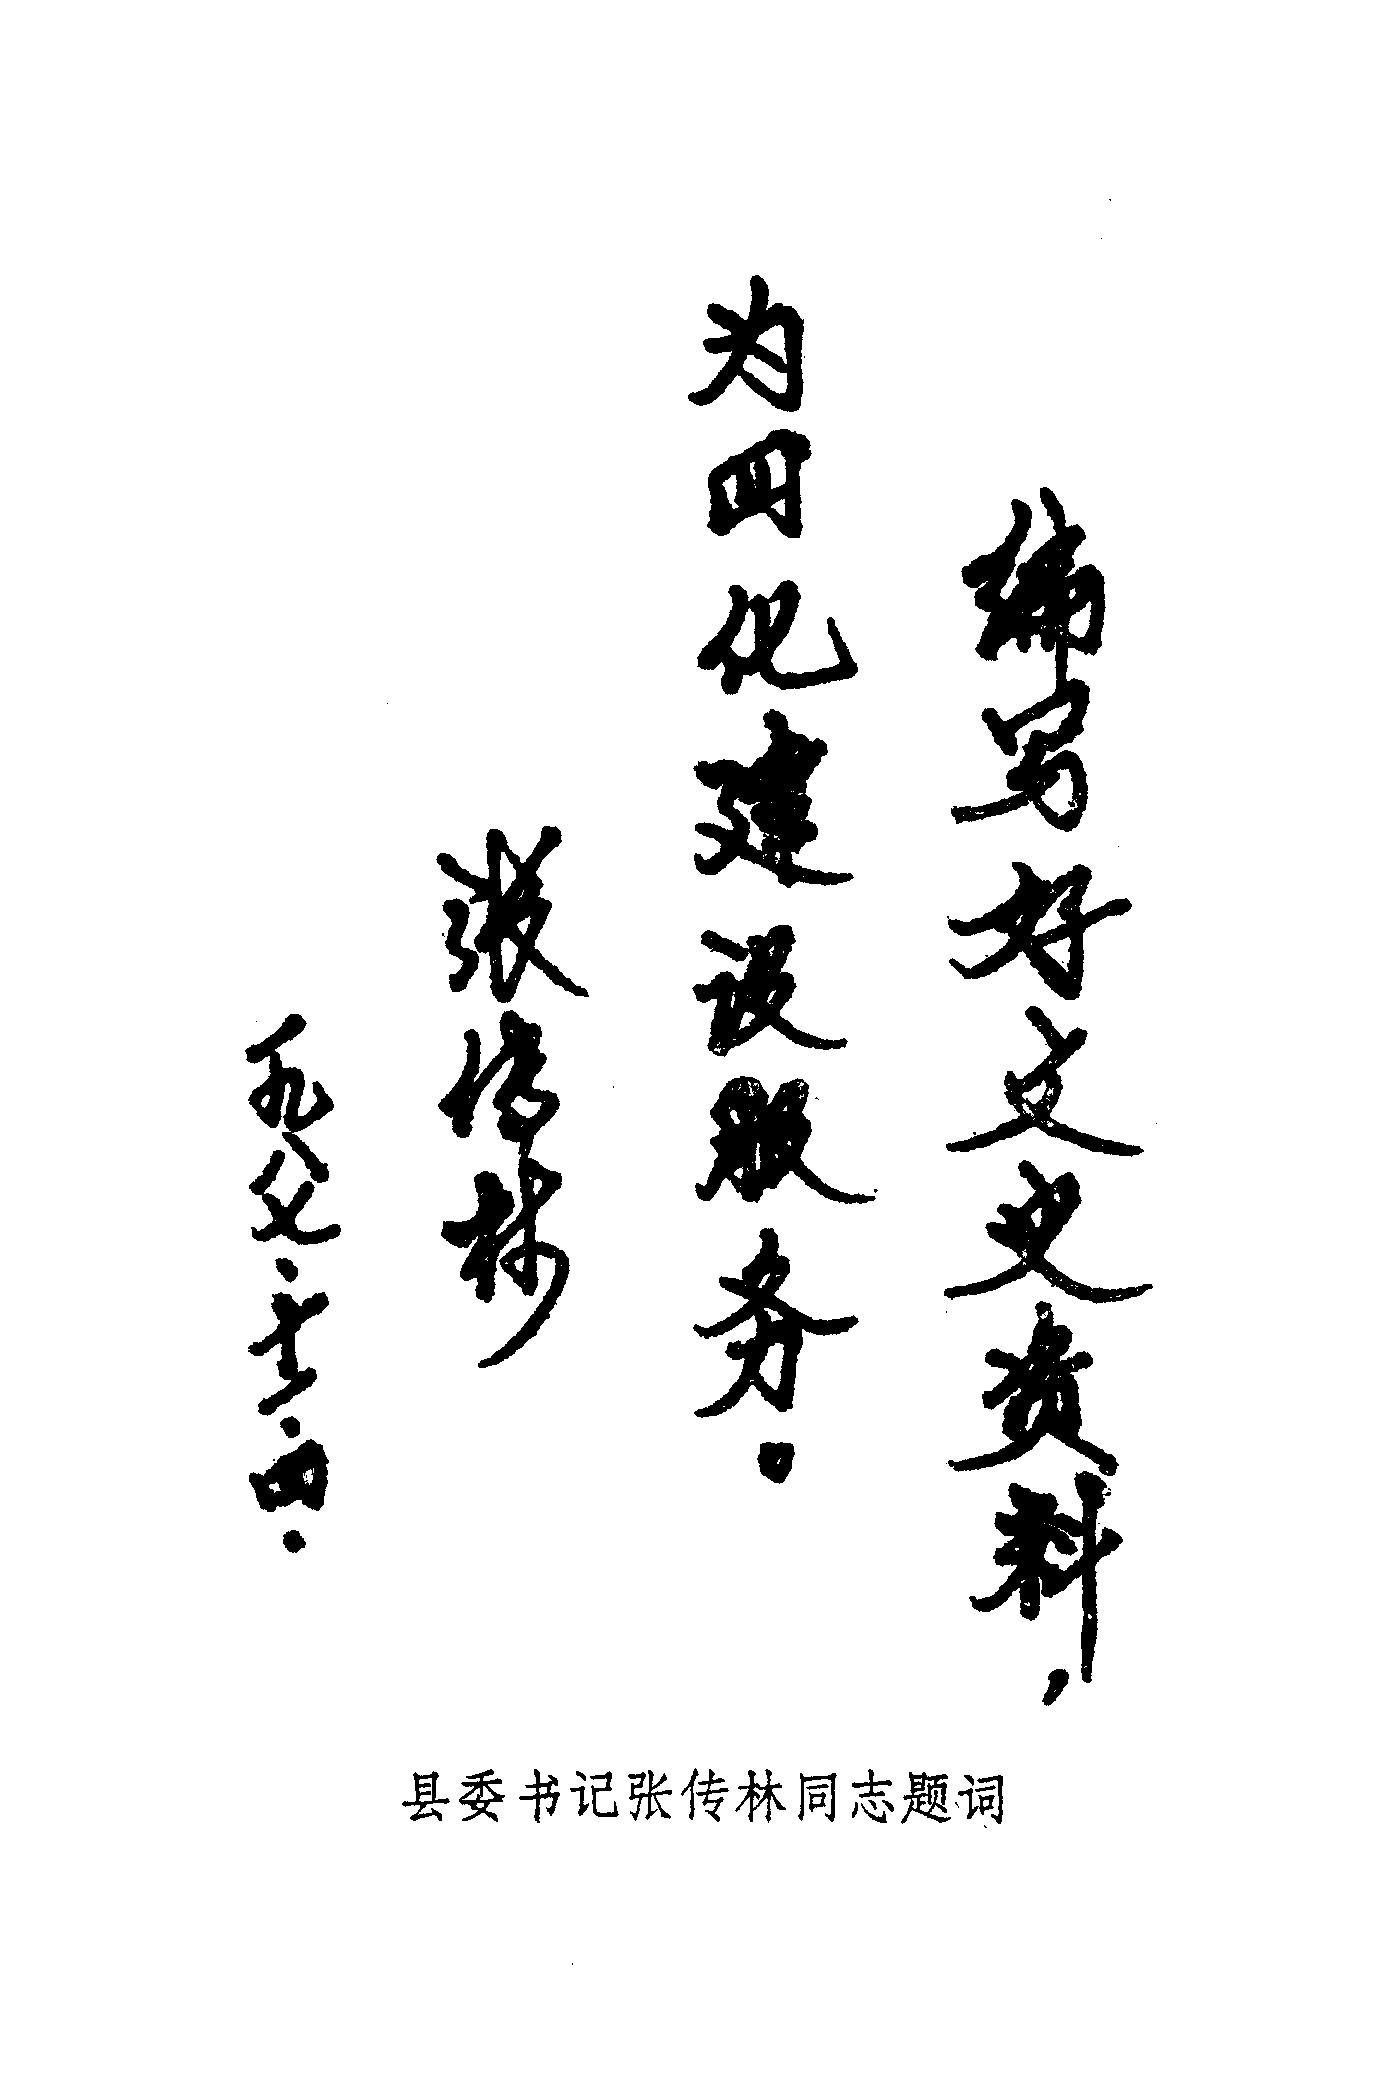 编写好文史资料，
为四化建设服务。
张传林
一九八七·十二·四·
县委书记张传林同志题词